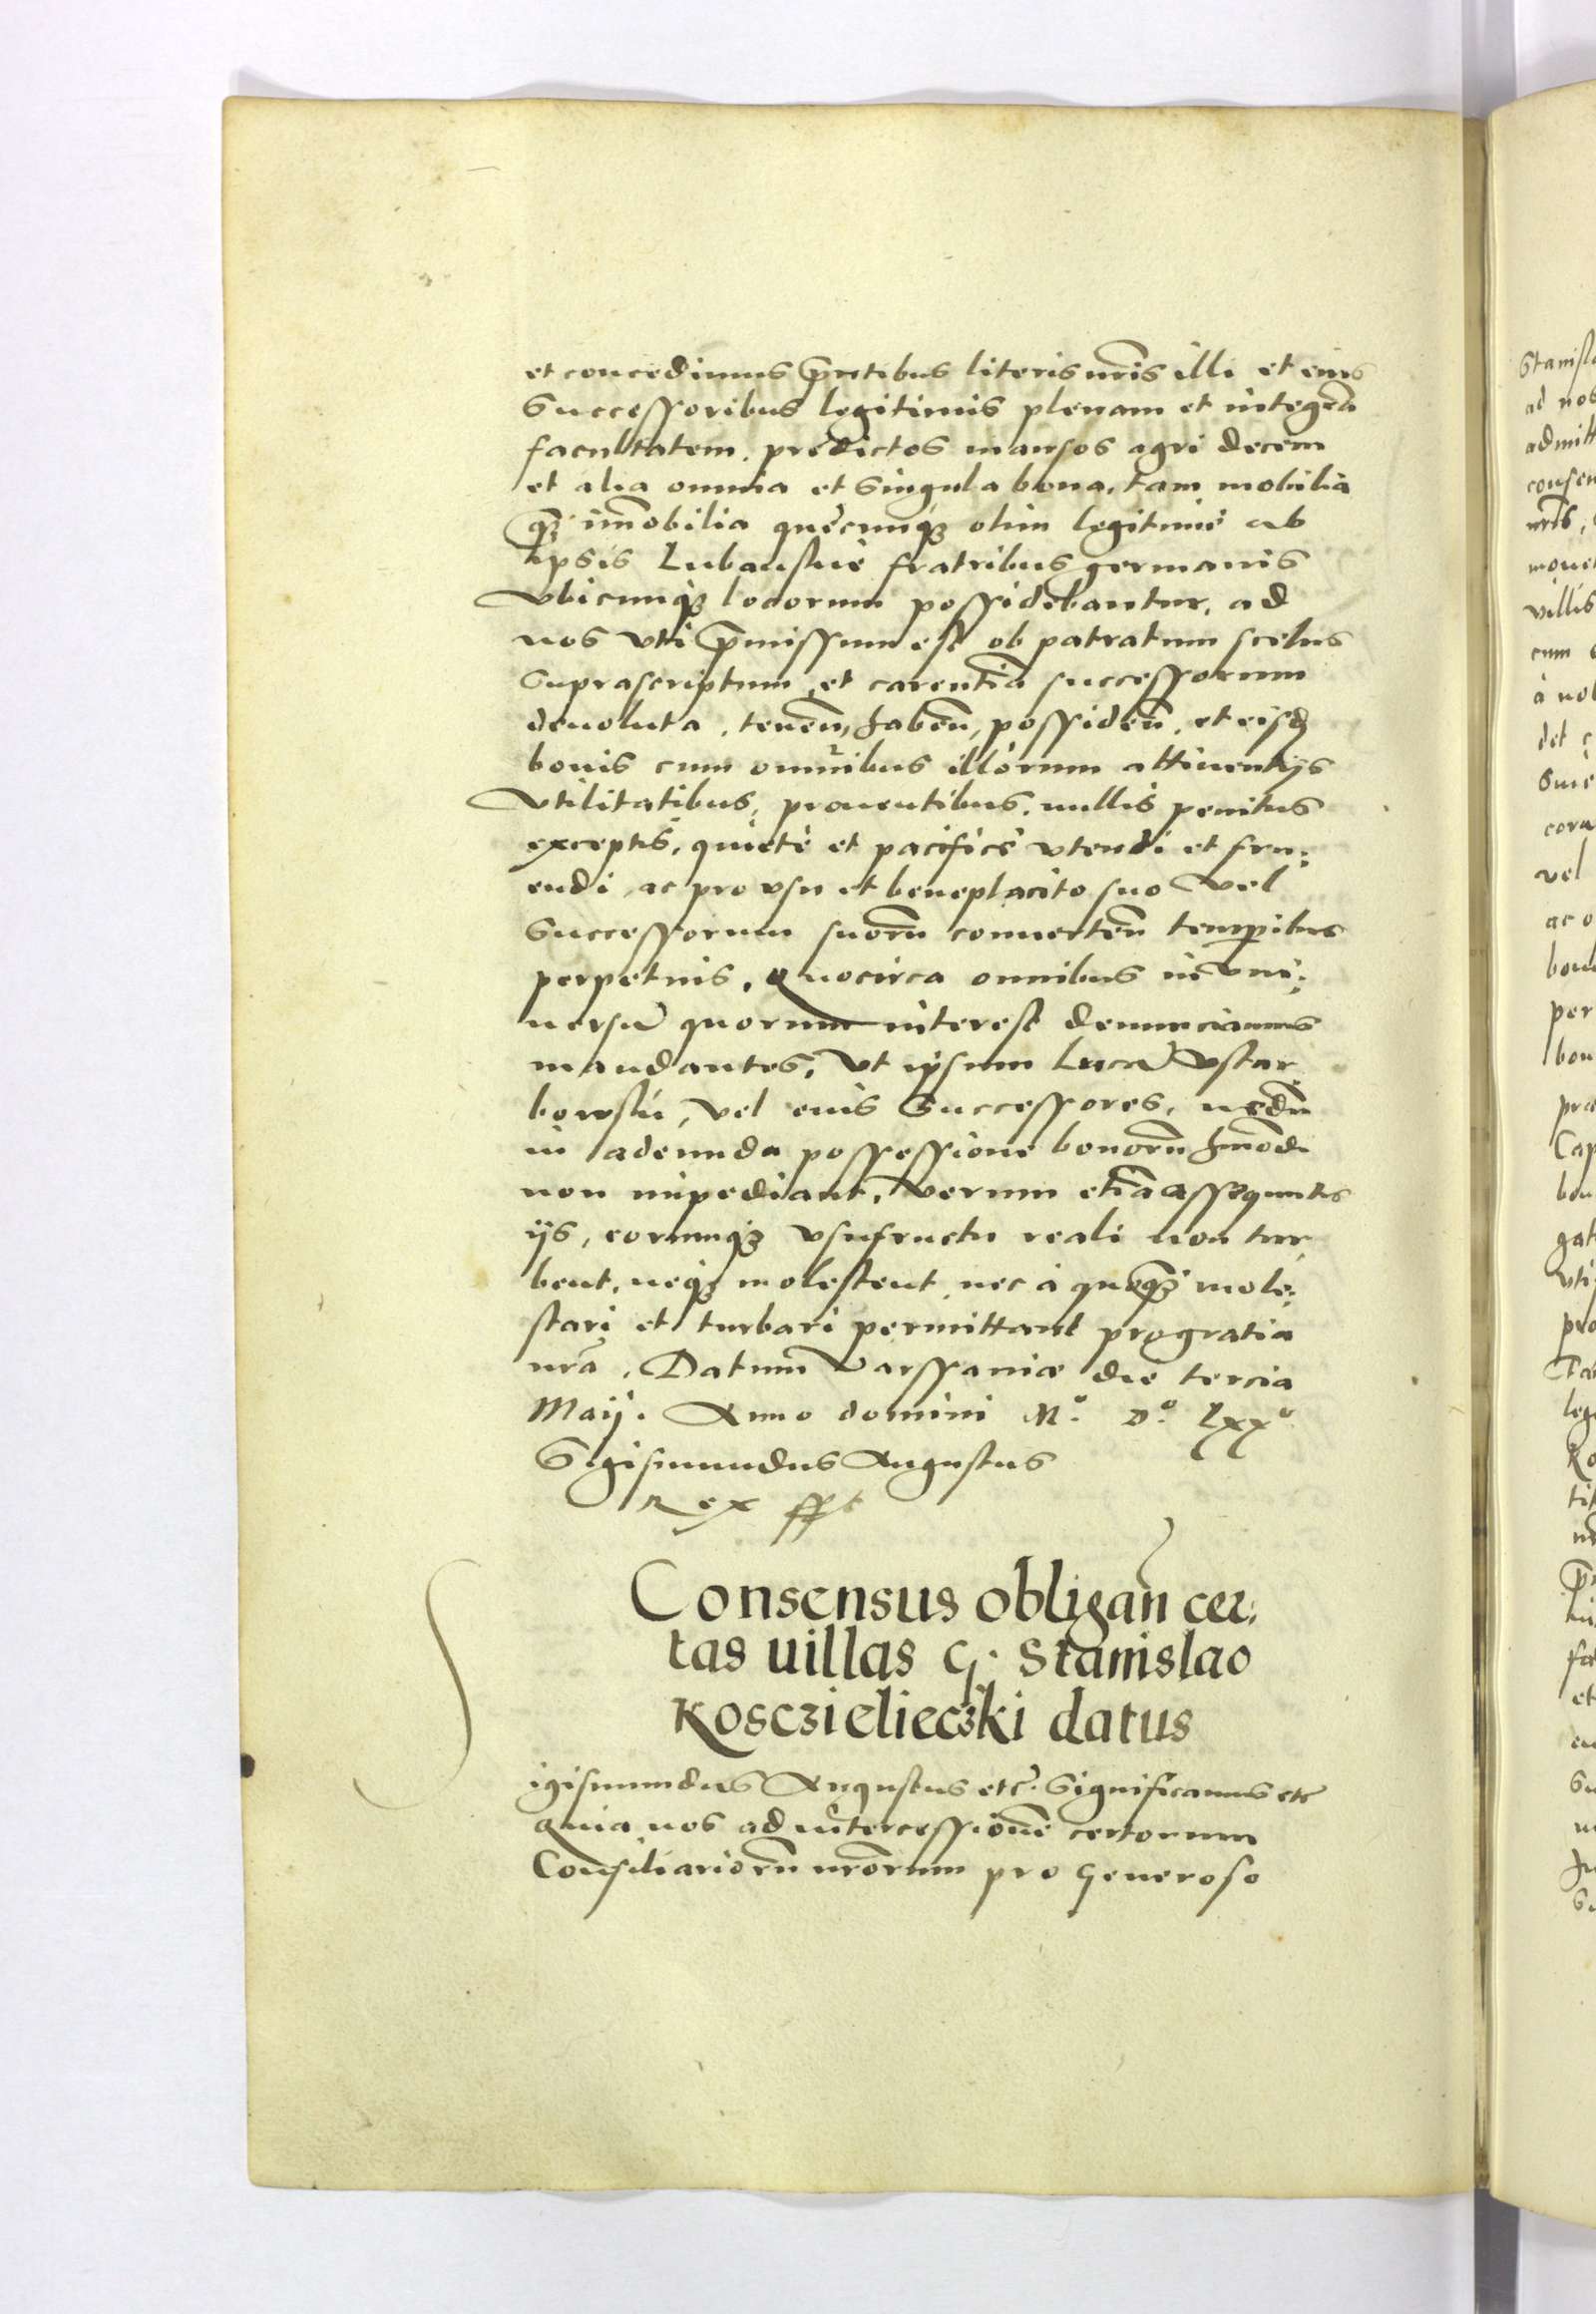 et concedimus pñtibus literis nr̃is illi et eius
Successoribus legitimis plenam et integrã
facultatem. predictos mansos agri decem
et alia omnia et singula bona, tam mobilia
quã im̃obilia quecunq3 olim legitimè ab
ipsis Lubanskie fratribus germanis
vbicunq3 locorum possidebantur, ad
nos vti p̃missum est ob patratum scelus
Suprascriptum, et carentiã successorum
deuoluta, tenen̄, haben̄, possiden̄, et eisd
bonis cum omnibus illorum attinentijs
vtilitatibus, prouentibus, nullis penitus
exceptis, quietè et pacificè vtendi et fru:
endi, ac pro vsu et beneplacito suo vel
Successorum suorũ conuerten̄ temp̱ibus
perpetuis. Quocirca omnibus in vni:
uersũ quorum interest denunciamus
mandantes, vt ipsum Lucã Vstar
bowski, vel eius Successores, nedũ
in adeunda possessione bonorũ hmõdi
non impediant, verum etiã assequutis
ijs, eorumq3 vsufructu reali non tur
bent, neq3 molestent, nec à quoquã mole:
stari et turbari permittant pro gratia
nr̃a. Datum Varssauiæ die tercia
Maij. Anno domini M.º D.º lxxº
Sigismundus Augustus
Rex sspt
Consensus obligan̄ cer:
tas uillas G. Stanislao
Koscziglieczki datus
igismundus Augustus etc̃. Significamus etc
quia nos ad intercessionẽ certorum
Consiliariorũ nr̃orum pro Generoso